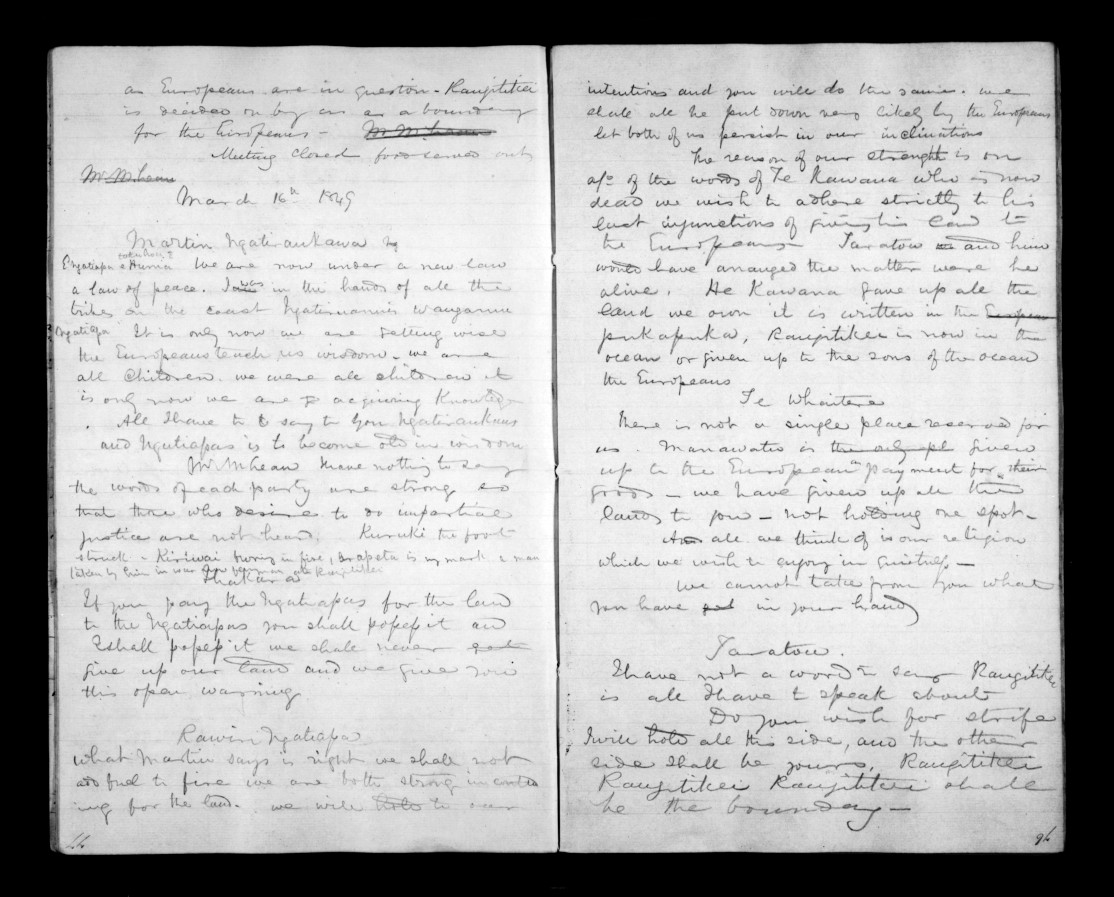 as Europeans are in question - Rangitikei
is decided on by us as a boundary
for the Europeans - Mr McLean
Meeting closed food served out
Mr McLean
March 16th 1849
Martin Ngatiraukawa
Ngatiapa Huria We are now under a new law
a law of peace. I was in the hands of all the
tribes on the coast Ngatiruanuis Wanganui
Ngatiapa It is only now we are getting wise
the Europeans teach us wisdom - we are
all children. we were all children it
is only now we are acquiring Knowledge
All I have to say to you Ngatiraukaua
and Ngatiapas is to become old in wisdom
Mr McLean I have nothing to say
the words of each party are strong so
that those who desire to do impartial
justice are not heard. Kuruki the foot
struck - Kiriwai in fire, Arapeta is my mark a man
taken by him in war
Ihakara
If you pay the Ngatiapas for the land
to the Ngatiapas you shall posess it and
I shall posess it we shall never get
give up our land and we give you
this open warning
Rawiri Ngatiapa
what Martin says is right we shall not
add fuel to fire we are both strong in contend
ing for the land. we will hold to our
intentions and you will do the same. we
shall all be put down very likely by the Europeans
let both of us persist in our inclinations
The reason of our strength is on
a/c of the words of Te Kawana who is now
dead we wish to adhere strictly to his
last injunctions of giving his land to
the Europeans Taratou and him
would have arranged the matter were he
alive. He Kawana gave up all the
land we own it is written in the European
pukapuka, Rangitikei is now in the
ocean or given up to the sons of the ocean
the Europeans
Te Whaitere
There is not a single place reserved for
us. Manawatu is the only pl given
up to the Europeans in payment for their
goods - we have given up all the
lands to you - not holding one spot -
And all we think of is our religion
which we wish to enjoy in quietness -
We cannot take from you what
you have got in your hand
Taratou.
I have not a word to say Rangitikei
is all I have to speak about
Do you wish for strife
I will hold all this side, and the other
side shall be yours, Rangitikei
Rangitikei Rangitikei shall
be the boundary -